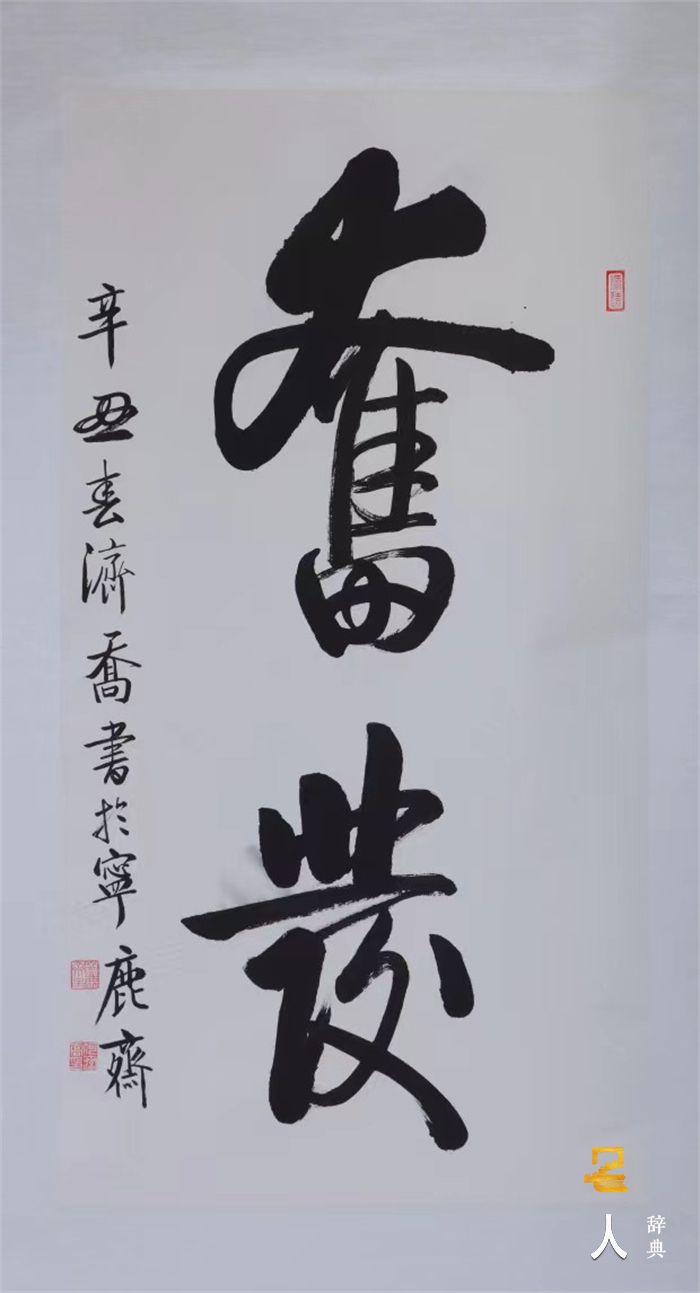 奮
發
辛丑春濟喬書於寧鹿齋
名人
辞典